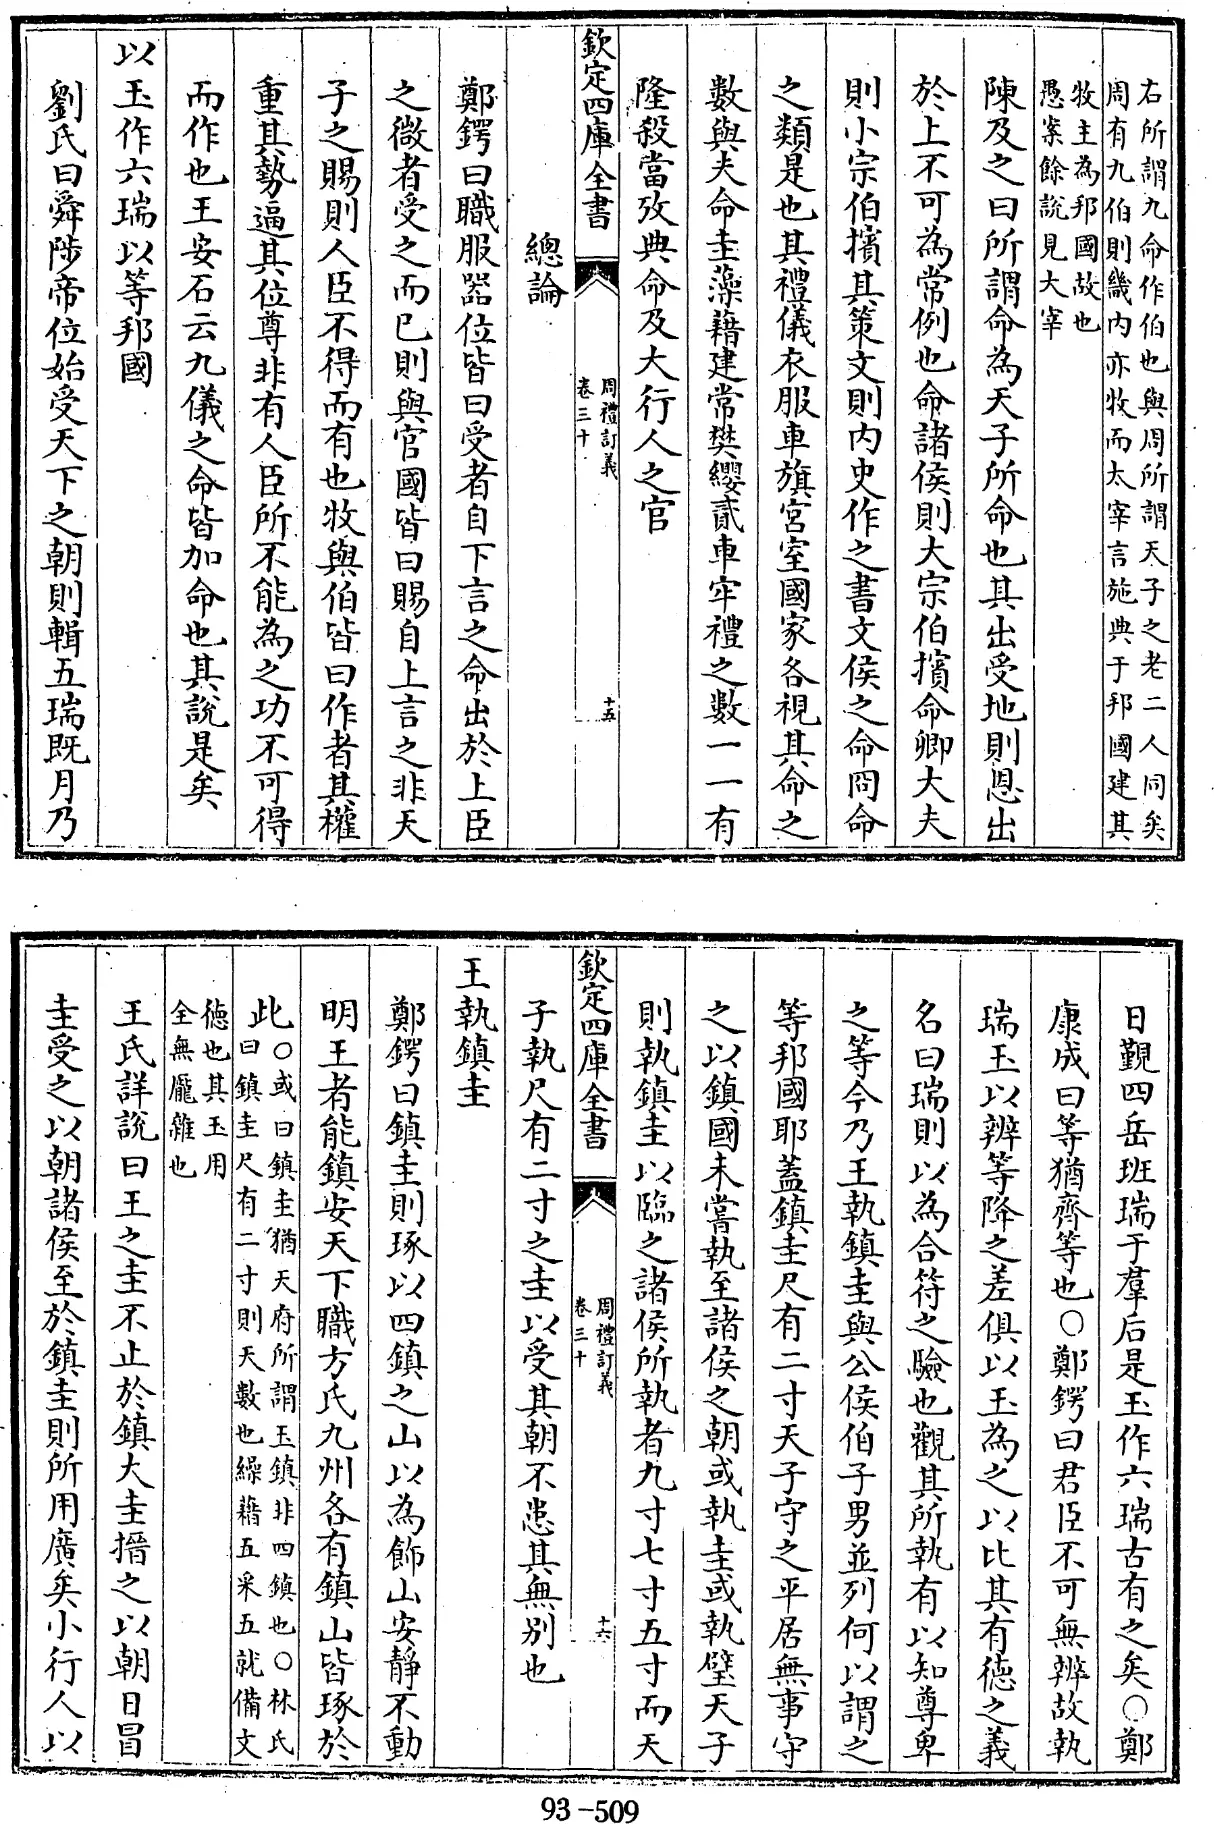 右所謂九命作伯也與周所謂天子之老二人同矣
周有九伯則畿内亦牧而太宰言施典于邦國建其
牧主為邦國故也
愚案餘說見大宰
陳及之曰所謂命為天子所命也其出受地則恩出
於上不可為常例也命諸侯則大宗伯擯命卿大夫
則小宗伯擯其策文則内史作之書文侯之命冏命
之類是也其禮儀衣服車旗宫室國家各視其命之
數與夫命圭藻藉建常樊纓貳車牢禮之數一一有
隆殺當攷典命及大行人之官
欽定四庫全書
周禮訂義
卷三十
十五
總論
鄭鍔曰職服器位皆曰受者自下言之命出於上臣
之微者受之而已則與官國皆曰賜自上言之非天
子之賜則人臣不得而有也牧與伯皆曰作者其權
重其勢逼其位尊非有人臣所不能為之功不可得
而作也王安石云九儀之命皆加命也其說是矣
以玉作六瑞以等邦國
劉氏曰舜陟帝位始受天下之朝則輯五瑞既月乃
日覲四岳班瑞于羣后是玉作六瑞古有之矣○鄭
康成曰等猶齊等也○鄭鍔曰君臣不可無辨故執
瑞玉以辨等降之差俱以玉為之以比其有德之義
名曰瑞則以為合符之驗也觀其所執有以知尊卑
之等今乃王執鎮圭與公侯伯子男並列何以謂之
等邦國耶蓋鎮圭尺有二寸天子守之平居無事守
之以鎮國未嘗執至諸侯之朝或執圭或執璧天子
則執鎮圭以臨之諸侯所執者九寸七寸五寸而天
欽定四庫全書
周禮訂義
卷三十
十六
子執尺有二寸之圭以受其朝不患其無别也
王執鎮圭
鄭鍔曰鎮圭則琢以四鎮之山以為飾山安靜不動
明王者能鎮安天下職方氏九州各有鎮山皆琢於
此○或曰鎮圭猶天府所謂玉鎮非四鎮也○林氏
曰鎮圭尺有二寸則天數也繅藉五采五就備文
德也其玉用
全無龎雜也
王氏詳說曰王之圭不止於鎮大圭搢之以朝日冒
圭受之以朝諸侯至於鎮圭則所用廣矣小行人以
93-509